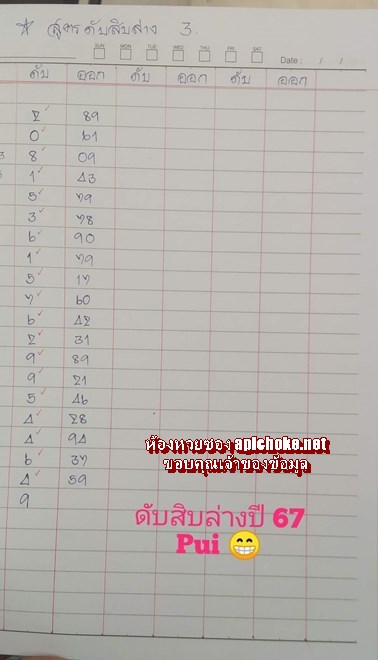 ☆ สูตรดับสิบล่าง 3.
SUN MON TUE WED THU FRI SAT
Date : / /
ดับ ออก ดับ ออก ดับ ออก
2 ✓ 89
0 ✓ 61
3 8 ✓ 09
1 ✓ 43
5 ✓ 79
3 ✓ 78
6 ✓ 90
1 ✓ 79
5 ✓ 17
7 ✓ 60
6 ✓ 42
2 ✓ 31
9 ✓ 89
9 ✓ 21
5 ✓ 46
4 ✓ 28
4 ✓ 94
6 ✓ 37
4 ✓ 59
9
ห้องหวยซอง apichoke.net
ขอบคุณเจ้าของข้อมูล
ดับสิบล่างปี 67
Pui 😁